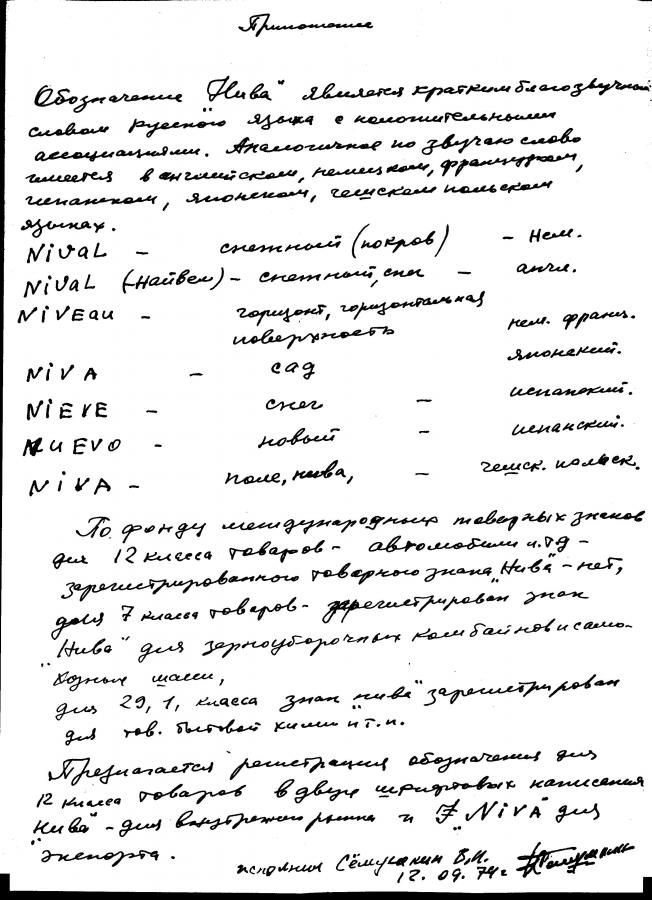 Приложение
Обозначение "Нива" является кратким благозвучным
словом русского языка с положительными
ассоциациями. Аналогичное по звучаю слово
имеется в английском, немецком, французском,
испанском, японском, чешском польском
языках.
NiVaL - снежный (покров) - Нем.
NiVaL (-Найвел) - снежный, снег - англ.
NiVEau - горизонт, горизонтальная
поверхность нем. франц.
NiVA - сад японский.
NiEVE - снег - испанский.
NUEVO - новый - испанский.
NiVA - поле, нива, - чешск. польск.
По фонду международных товарных знаков
для 12 класса товаров - автомобили и.т.д -
зарегистрированного товарного знака "Нива" - нет,
для 7 класса товаров - зарегистрирован знак
"Нива" для зерноуборочных комбайнов и само-
ходных шасси,
для 29, 1, класса знак "нива" зарегистрирован
для тов. бытовой химии и т. п.
Предлагается регистрация обозначения для
12 класса товаров в двух шрифтовых написания
"Нива" - для внутреннего рынка и "NiVA" для
экспорта.
исполнил Сёмушкин В.И.
12. 09. 74г